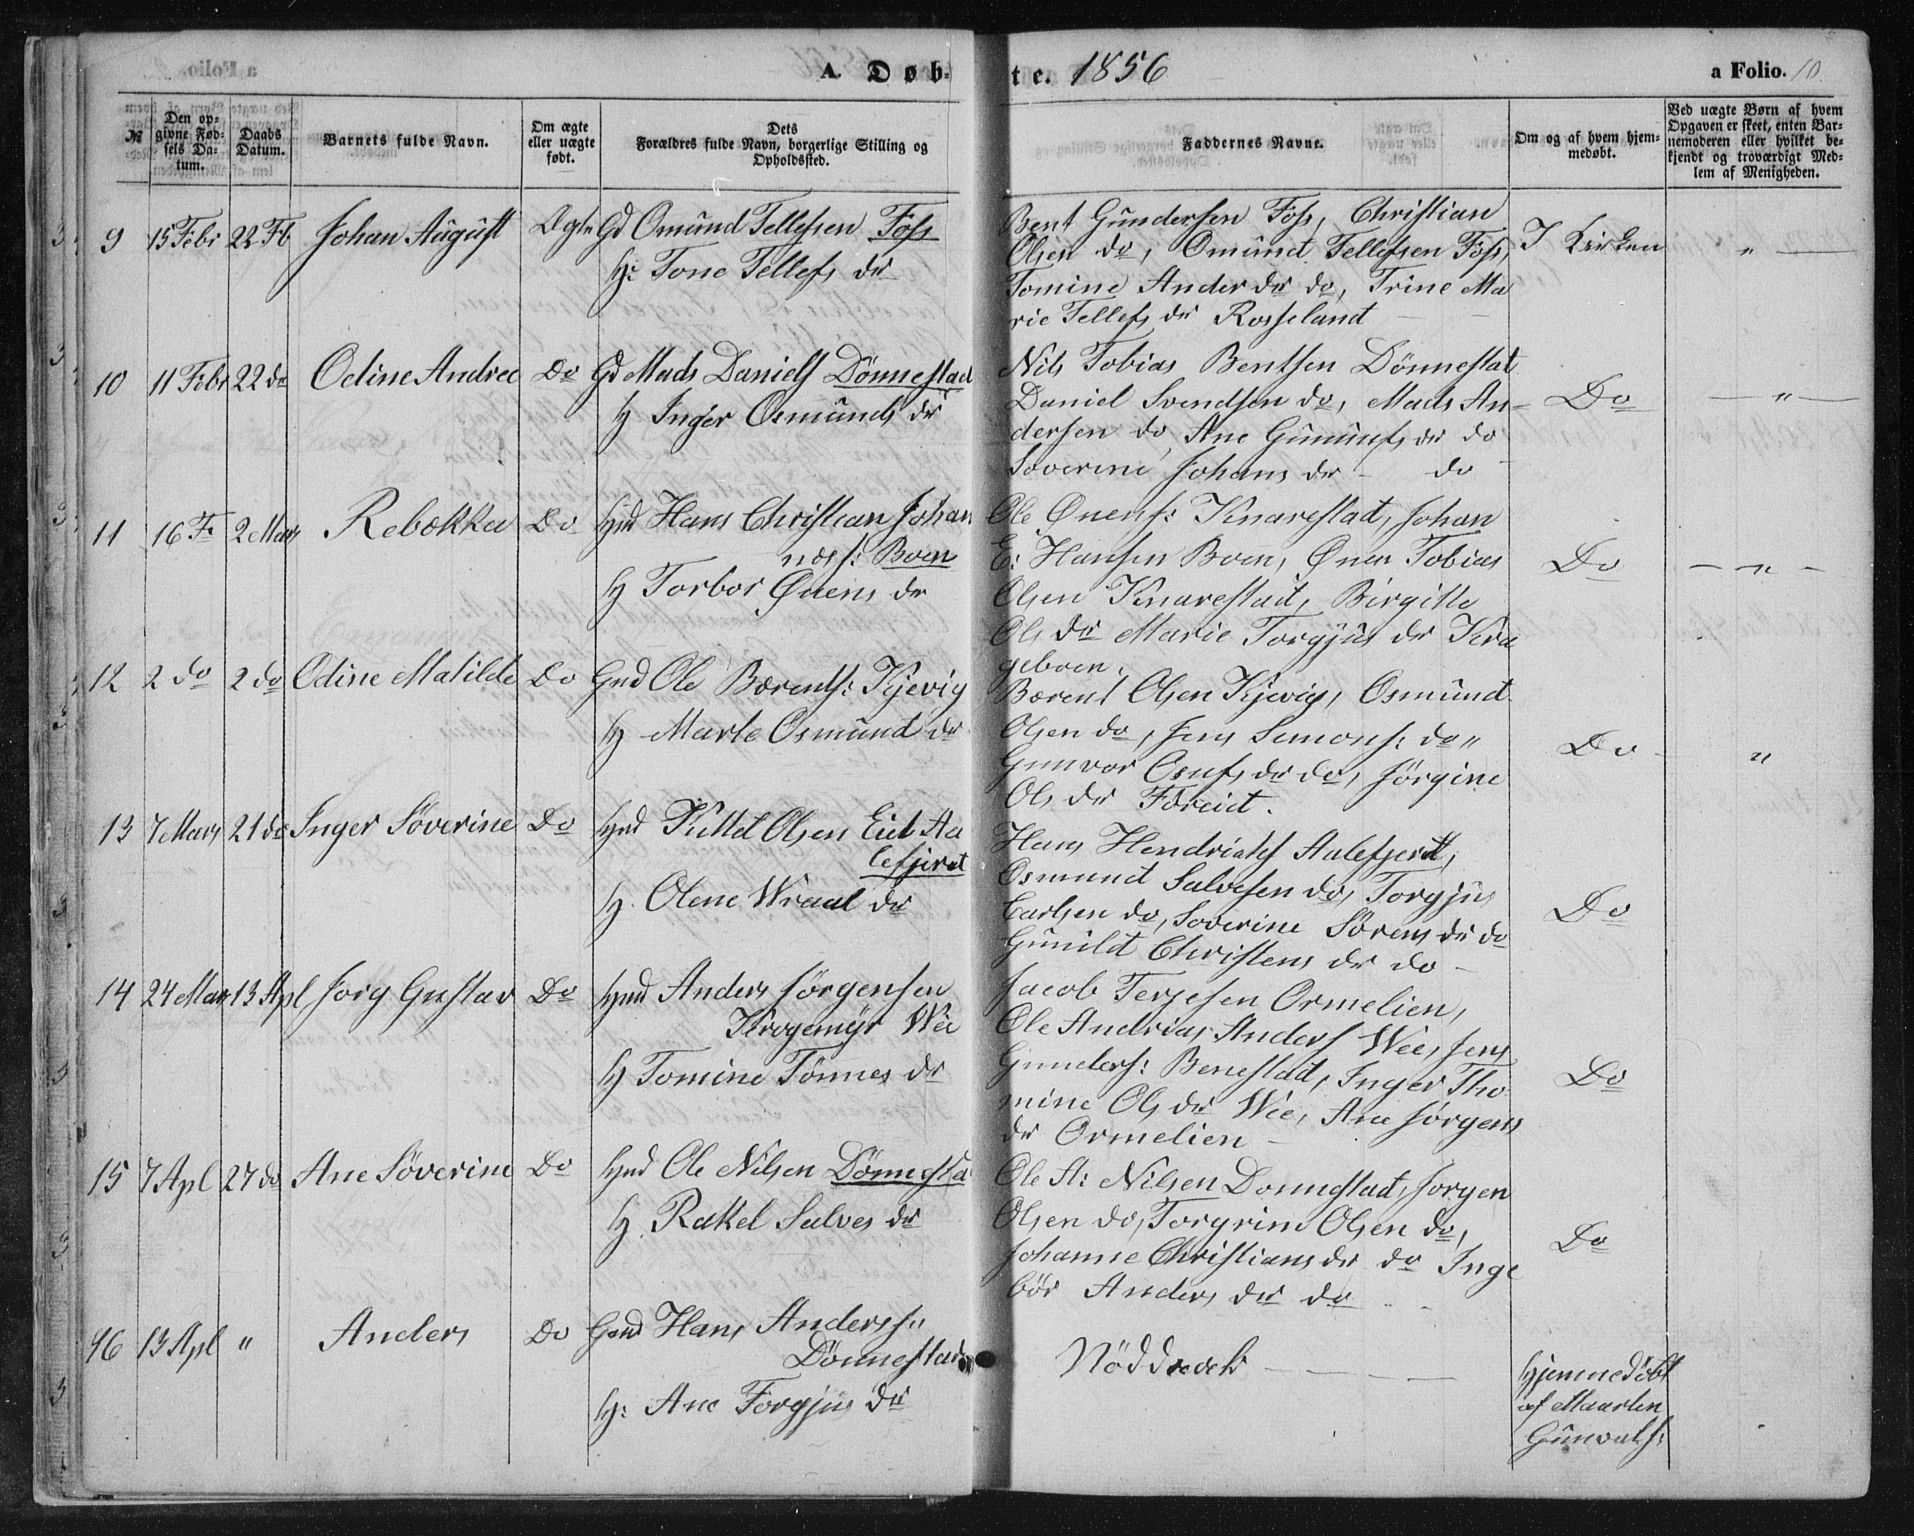 A. Døb-
te. 1856
a Folio. 10.
№
Den op-
givne Fød-
sels Da-
tum.
Daabs
Datum.
Barnets fulde Navn.
Om ægte
eller uægte
født.
Dets
Forældres fulde Navn, borgerlige Stilling og
Opholdssted.
Faddernes Navne.
Om og af hvem hjem-
medøbt.
Ved uægte Børn af hvem
Opgaven er skeet, enten Bar-
nemoderen eller hvilket be-
kjendt og troværdigt Med-
lem af Menigheden.
9 15 Febr 22 Fb Johan August Ægte Gd Omund Tellefsen Foss
H: Tone Tellefs dr
Bent Gundersen Foss, Christian
Olsen do, Omund Tellefsen Foss,
Tomine Anders dr do, Trine Ma
rie Tellefs dr Rosseland
I Kirken " —
10 11 Febr 22 do Odine Andree Do Gd Mads Daniels Dønnestad
H Inger Osmunds dr
Nils Tobias Bentsen Dønnestat
Daniel Svendsen do, Mads An-
dersen do, Ane dr do
Soverine Johans dr - do
Do — " —
11 16 F 2 Mars Rebækka Do Hmd Hans Christian Johan
ness: Boen
H Torbor Ønens dr
Ole Ønens: Knarestad, Johan
E: Hansen Boen, Ønen Tobias
Olsen Knarestad, Birgitte
Ols dr Marie Torgjus dr Kra
geboen.
Do — " —
12 2 do 2 do Odine Matilde Do Gmd Ole Bærents: Kjevig
H Marte Osmund dr
Bærent Olsen Kjevig, Osmund
Olsen do, Jens Simons: do "
Gunvor dr do, Jørgine
Ols dr
Do "
13 7 Mars 21 do Inger Søverine Do Hmd Kittel Olsen Eiet Aa
lefjeret
H. Olene Wraal dr
Hans Hendriks Aalefjerdt,
Osmund Salvesen do, Torgjus
Carlsen do, Soverine Sørens dr do
Gunild Christens dr do -
Do
14 24 Mars 13 Apl Jorg Gustav Do Hmd Anders Jørgensen
Krogemyr Wee
H Tomine Tønnes dr
Jacob Terjesen Ormelien,
Ole Andrias Anders Wee, Jens
Gunders: Benestad, Inger Tho
mine Ols dr Wee, Ane Jørgens
dr Ormelien -
Do
15 7 Apl 27 do Ane Søverine Do Hmd Ole Nilsen Dønnesta
H. Rakel Salves dr
Ole A: Nilsen Donnestad, Jorgen
Olsen do, Torgrim Olsen do,
Johanne Christians dr do Inge
bør Anders dr do
Do
16 13 Apl " Anders Do Gmd Hans Anderss:
Dønnestad
H: Ane Torgjus dr
Nøddøbt
Hjemmedøbt
af Maarten
Gunvals: